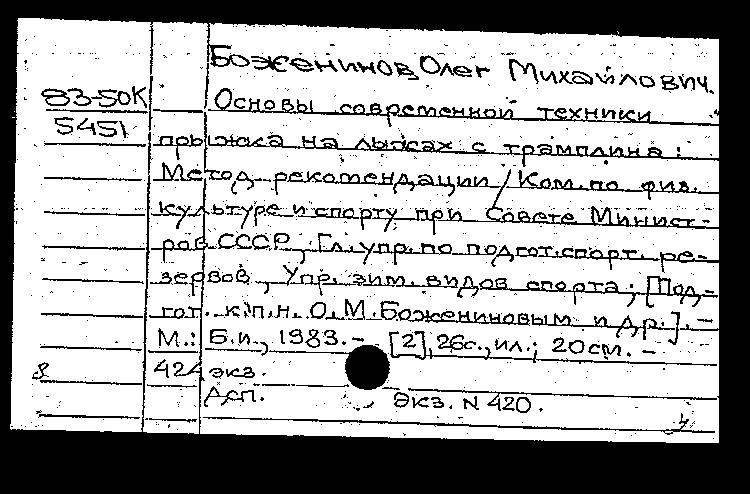 Боженинов, Олег Михайлович.
83-50К Основы современной техники
5451 прыжка на лыжах с трамплина:
Метод. рекомендации / Ком. по физ.
культуре и спорту при Совете Минист-
ров СССР, Гл. упр. по подгот. спорт. ре-
зервов, Упр. зим. видов спорта; [Под-
гот. к.п.н. О.М. Божениновым и др.]. -
М.: Б.и., 1983. - [2], 26с., ил.; 20см. -
8 424 экз.
Экз. N 420.